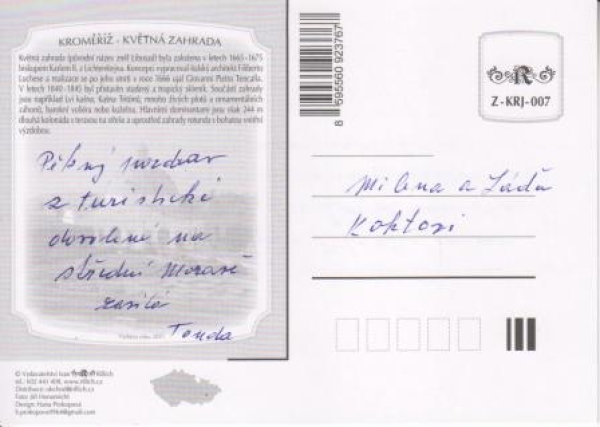 KROMĚŘÍŽ - KVĚTNÁ ZAHRADA
Květná zahrada (původní název zněl Libosad) byla založena v letech 1665-1675
biskupem Karlem II. z Lichtenštejna. Koncepci vypracoval italský architekt Filiberto
Luchese a realizace se po jeho smrti v roce 1666 ujal Giovanni Pietro Tencalla.
V letech 1840-1845 byl přistavěn studený a tropický skleník. Součástí zahrady
jsou například Lví kašna, Kašna Tritónů, mnoho živých plotů a ornamentálních
záhonů, barokní voliéra nebo kuželna. Hlavními dominantami jsou však 244 m
dlouhá kolonáda s terasou na střeše a uprostřed zahrady rotunda s bohatou vnitřní
výzdobou.
Pěkný pozdrav
z turistické
dovolené na
střední Moravě
zasílá
Tonda
8 595560 923767
Z-KRJ-007
Milena a Láďa
Koktovi
© Vydavatelství
tel.: 602 443 408, www.rillich.cz
Distribuce: obchod@rillich.cz
Foto: Jiří
Design: Hana Prokopová
h.prokopova1964@gmail.com